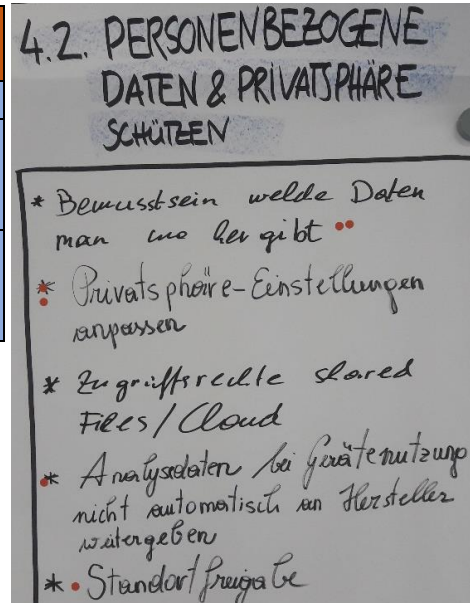 4.2. PERSONENBEZOGENE
DATEN & PRIVATSPHÄRE
SCHÜTZEN
* Bewusstsein welche Daten
man wo her gibt
* Privatsphäre-Einstellungen
anpassen
* Zugriffsrechte shared
Files/Cloud
* Analysedaten bei Gerätenutzung
nicht automatisch an Hersteller
weitergeben
* Standortfreigabe